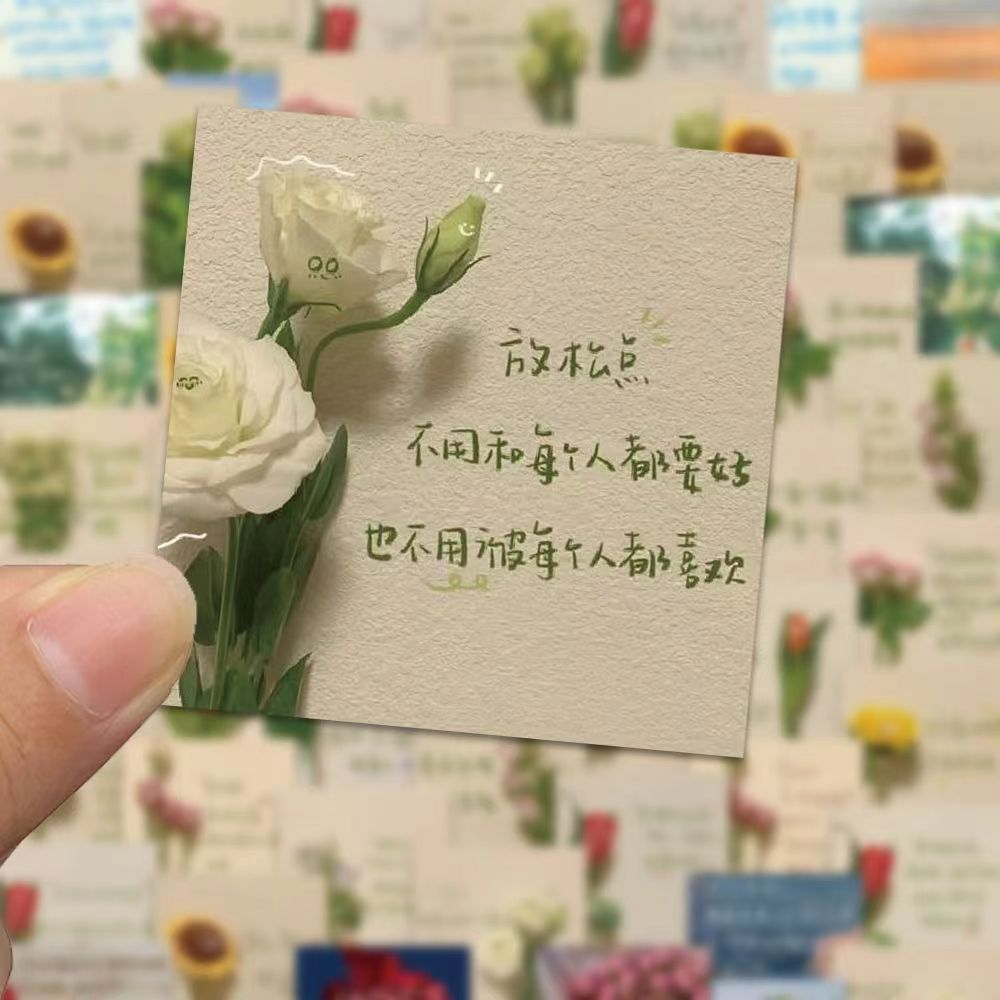 放松点
不用和每个人都要好
也不用被每个人都喜欢